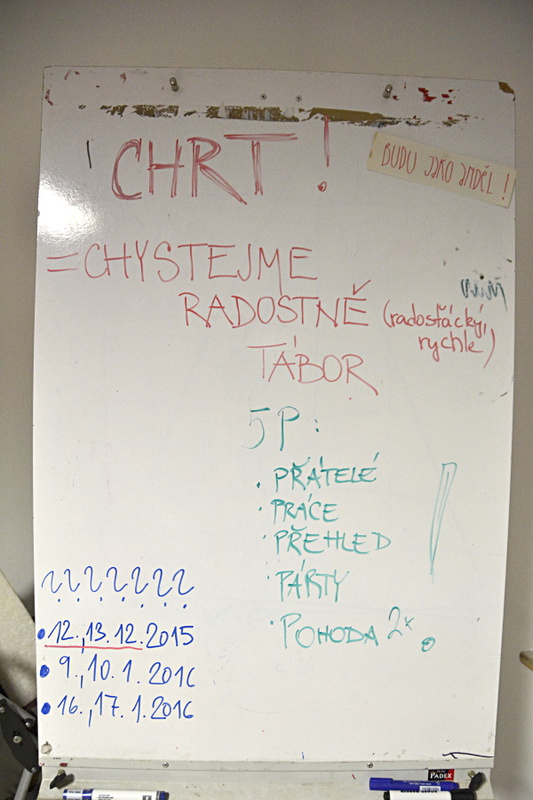 CHRT!
BUDU JAKO ANDĚL!
=CHYSTEJME
RADOSTNĚ (radosťácký,
rychle)
TÁBOR
5P:
. PŘÁTELÉ
. PRÁCE
. PŘEHLED
. PÁRTY
. POHODA 2x
???????
• 12.,13.12.2015
• 9.,10.1.2016
• 16.,17.1.2016
PADEX